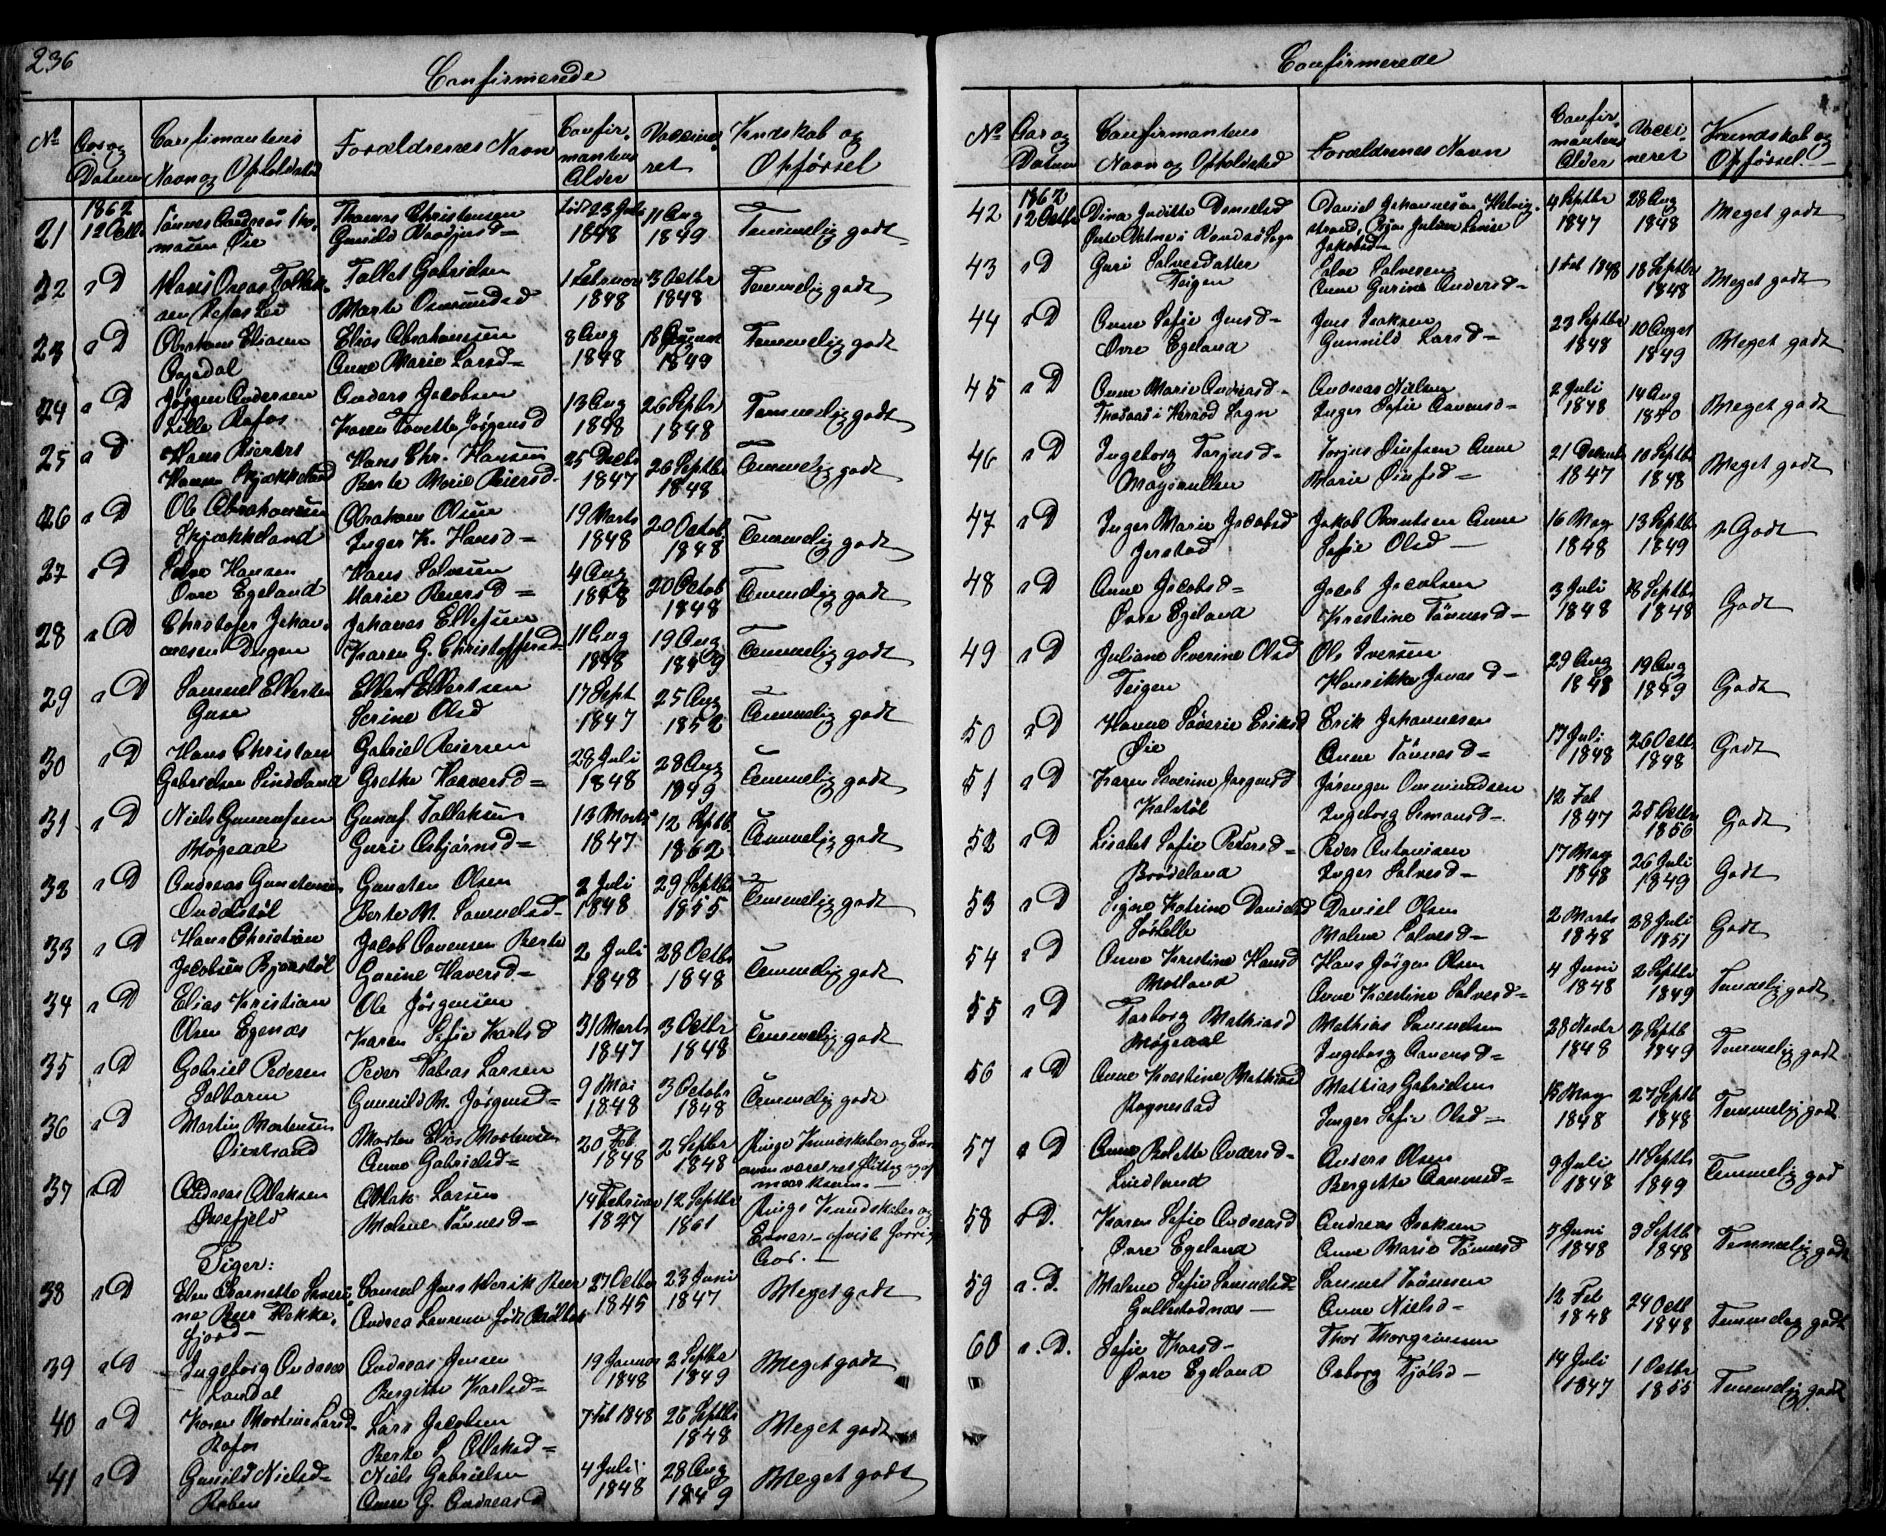 236
Confirmerede
No
Aar og
Datum
Confirmantens
Navn og Opholdsted
Forældrenes Navn
Confir-
mantens
Alder
Vaccine-
ret
Kundskab og
Opførsel
21
1862
12 Octb.
Tønnes Andreas Tho-
masen Øie
Thomas Christensen
Gunild Aasjersd=
23 Juli
1848
11 Aug
1849
Temmelig godt
22
" D
Hans Tollef-
sen Refos Lie
Tollef Gabrielsen
Marte Osmundsd
1 Februar
1848
3 Octbr
1848
Temmelig godt
23
" D
Abraham Eliasen
Elias Abrahamsen
Anne Marie Larsd=
8 Aug
1848
1849
Temmelig godt
24
" D
Jørgen Andersen
Lille Rafos
Anders Jacobsen
Karen Tovette Jørgensd
13 Aug
1848
26 Septbr
1848
Temmelig godt
25
" D
Hans Reierts
Hansen Skjækkeland
Hans Chr. Hansen
Berte Marie Reiersd
25 Decbr
1847
26 Septbr
1848
Temmelig godt
26
" D
Ole Abrahamsen
Skjækkeland
Abraham Olsen
Inger K. Hansd=
19 Marts
1848
20 Octob.
1848
Temmelig godt
27
" D
Salve Hansen
Øvre Egeland
Hans Salvesen
Marie Reiersd =
4 Aug
1848
20 Octob
1848
Temmelig godt
28
" D
Christofer Johan-
nesen Dugen
Johanes Ellefsen
Karen G. Christoffersd
11 Aug
1848
19 Aug
1849
Temmelig godt
29
" D
Samuel Ellertsen
Gase
Ellert Ellertsen
Serine Olsd
17 Sept
1847
25 Aug
1852
Temmelig godt
30
" D
Hans Christian
Gabrielsen Sindeland
Gabriel Reiersen
Grethe Haaversd=
28 Juli
1848
28 Aug
1849
Temmelig godt
31
" D
Niels Gunnufsen
Møgeaal
Gunuf Tollaksen
Guri Asbjørnsd=
13 Marts
1847
12 Septb.
1862
Temmelig godt
32
" D
Andreas Gundersen
Ondalstøl
Gunsten Olsen
Berte M. Samuelsd=
2 Juli
1848
29 Septbr
1855
Temmelig godt
33
" D
Hans Christian
Jacobsen Bjørnstøl
Jacob Aanensen Berte
Gurine Haversd=
2 Juli
1848
28 Octbr
1848
Temmelig godt
34
" D
Elias Kristian
Olsen Egenæs
Ole Jørgensen
Karen Sofie Karlsd
31 Marts
1847
3 Octbr
1848
Temmelig godt
35
" D
Gabriel Pedersen
Solbaren
Peder Tobias Larsen
Gunnild M. Jørgensd=
9 Mai
1848
3 Octobr
1848
Temmelig godt
36
" D
Martin Mortensen
Øiestrand
Morten Elias Mortensen
Anne Gabrielsd=
20 Feb
1848
2 Septbr
1848
Ringe Kundskaber og
været ret flittig og op-
mærksom.
37
" D
Andreas Atlaksen
Ovefjeld
Atlak Larsen
Malene Tønnesd=
14 Februar
1847
12 Septbr
1861
Ringe Kundskaber og
Evner forrige
Aar.
Piger:
38
" D
Elen Barnette Severi-
ne Beer Flekke-
fjord
Consul Jens Henrik Beer
Andrea Laurense født
27 Octbr
1845
23 Juni
1847
Meget godt
39
" D
Ingeborg Andreasd
Londal
Andreas Jensen
Bergitte Karlsd=
19 Januar
1848
2 Septbr
1849
Meget godt
40
" D
Karen Martine Larsd
Rafos
Lars Jacobsen
Berte S. Atlaksd=
7 Feb 1848
26 Septbr
1848
Meget godt
41
" D
Gunild Nielsd=
Roben
Niels Gabrielsen
Anne G. Andreasd
4 Juli
1848
28 Aug
1849
Meget godt
Confirmerede
No
Aar og
Datum
Confirmantens
Navn og Opholdsted
Forældrenes Navn
Confir-
mantens
Alder
Vacci-
neret
Kundskab og
Opførsel.
42
1862
12 Octbr
Dina Juditte Danielsd
Daniel Johannesen Helvig-
strand, Julianne Lovise
Jakobsd
4 Septbr
1847
28 Aug
1848
Meget godt
43
" D
Guri Salvesdatter
Teigen
Salve Salvesen
Anne Gurine Andersd=
1 Feb 1848
18 Septbr
1848
Meget godt
44
" D
Anne Sofie Jensd=
Øvre Egeland
Jens Isaksen
Gunnild Larsd=
23 Septbr
1848
10 August
1849
Meget godt
45
" D
Anne Marie Andreasd=
i Herad Sogn
Andreas Nielsen
Inger Sofie Aanensd=
2 Juli
1848
14 Aug
1850
Meget godt
46
" D
Ingeborg Torjusd=
Torjus Øiufsen Anne
Marie Øiufsd=
21 Decemb
1847
10 Septbr
1848
Meget godt
47
" D
Inger Marie Jacobsd
Jerstad
Jakob Berntsen Anne
Sofie Olsd
16 May
1848
13 Septbr
1849
Godt
48
" D
Anne Jacobsd=
Øvre Egeland
Jacob Jacobsen
Kirstine Tønnesd=
3 Juli
1848
18 Septbr
1848
Godt
49
" D
Juliane Severine Olsd
Teigen
Ole Iversen
Henrikke Jonasd=
29 Aug
1848
19 Aug
1849
Godt
50
" D
Hanne Severie Eriksd
Øie
Erik Johannesen
Anne Tønnesd=
17 Juli
1848
26 Octb.
1848
Godt
51
" D
Karen Severine Jørgensd
Kalstøl
Jørengen Ommundsen
Ingeborg Simonsd=
12 Feb
1847
25 Octbr
1856
Godt
52
" D
Lisabet Sofie Pedersd=
Brådeland
Peder Antonisen
Inger Salvesd=
17 May
1848
26 Juli
1849
Godt
53
" D
Signe Katrine Danielsd
Sørhelle
Daniel Olsen
Malene Salvesd=
2 Marts
1848
28 Juli
1851
Godt
54
" D
Anne Kirstine Hansd
Motland
Hans Jørgen Olsen
Anne Kirstine Salvesd=
4 Juni
1848
2 Septbr
1849
Temmelig godt
55
" D
Torborg Mathiasd
Møgeaal
Mathias Samuelsen
Ingeborg Aanensd=
28 Novbr
1848
3 Septb
1849
Temmelig godt
56
" D
Anne Kirstine Mathiasd
Rognestad
Mathias Gabrielsen
Inger Sofie Olsd=
15 May
1848
27 Septb
1848
Temmelig godt
57
" D
Anne Bolette Andersd=
Lindland
Anders Olsen
Bergette Aanensd=
9 Juli
1848
11 Septbr
1849
Temmelig god
58
" D.
Karen Sofie Andreasd
Øvre Egeland
Andreas Isaksen
Anne Marie Tønnesd
5 Juni
1848
3 Septb
1848
Temmelig godt
59
" D.
Malene Sofie Samuelsd
Gullestadnæs
Samuel Tønnesen
Anne Nielsd=
12 Feb
1848
24 Octb
1848
Temmelig godt
60
" D.
Sofie Thorsd=
Øvre Egeland
Thor Thorgrimsen
Asborg Tjølsd
14 Juli
1847
1 Octbr
1855
Temmelig godt